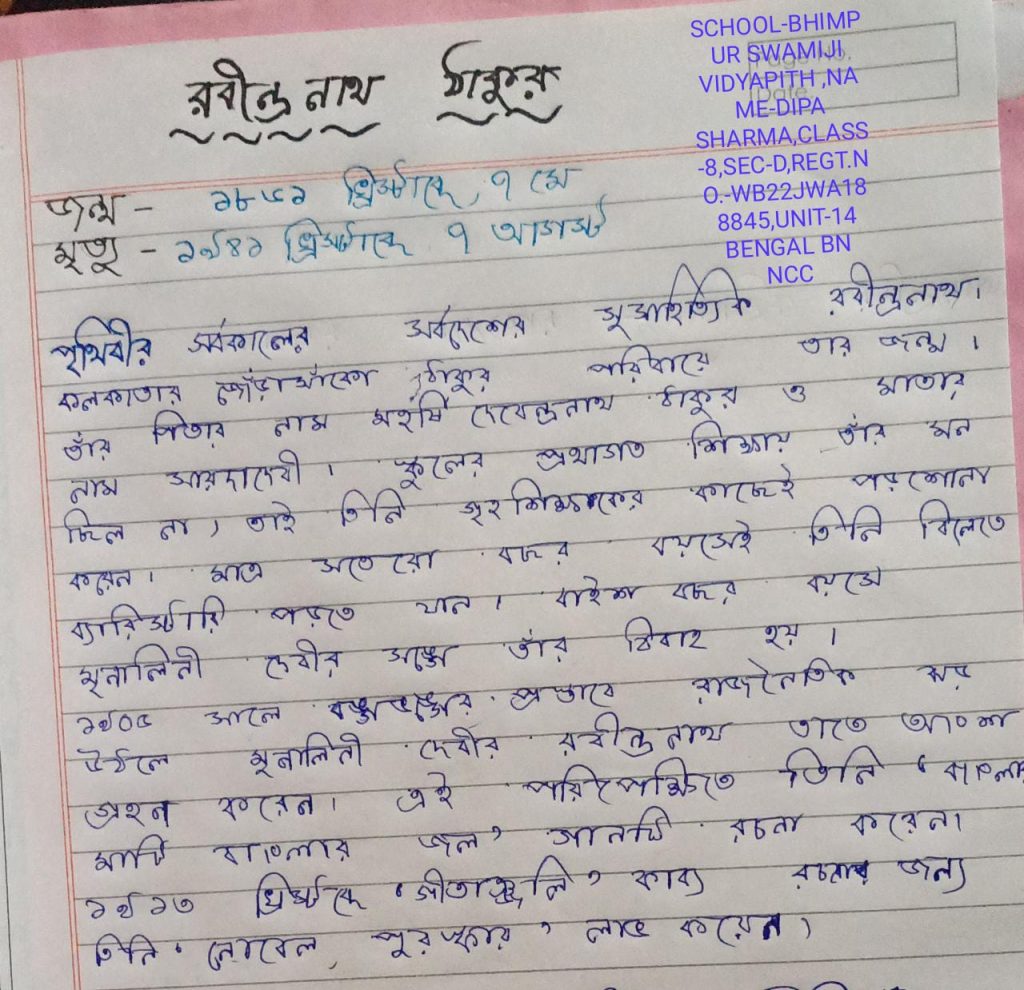 রবীন্দ্রনাথ ঠাকুর
SCHOOL-BHIMP
UR SWAMIJI
VIDYAPITH ,NA
ME-DIPA
SHARMA,CLASS
-8,SEC-D,REGT.N
O.-WB22JWA18
8845,UNIT-14
BENGAL BN
NCC
Page No.
Date
জন্ম - ১৮৬১ খ্রিস্টাব্দে, ৭ মে
মৃত্যু - ১৯৪১ খ্রিস্টাব্দে ৭ আগস্ট
পৃথিবীর সর্বকালের সর্বদেশের সুসাহিত্যিক রবীন্দ্রনাথ।
কলকাতার জোঁড়াসাঁকো ঠাকুর পরিবারে তার জন্ম।
তাঁর পিতার নাম মহর্ষি দেবেন্দ্রনাথ ঠাকুর ও মাতার
নাম সারদাদেবী। স্কুলের প্রথাগত শিক্ষায় তাঁর মন
ছিল না, তাই তিনি গৃহশিক্ষকের কাছেই পড়শোনা
করেন। মাত্র সতেরো বছর বয়সেই তিনি বিলেতে
ব্যারিস্টারি পড়তে যান। বাইশ বছর বয়সে
মৃনালিনী দেবীর সঙ্গে তাঁর বিবাহ হয়।
১৯০৫ সালে বঙ্গভঙ্গের প্রভাবে রাজনৈতিক ঝড়
উঠলে মৃনালিনী দেবীর রবীন্দ্রনাথ তাতে অংশ
গ্রহন করেন। এই পরিপেক্ষিতে তিনি 'বাংলার
মাটি বাংলার জল' গানটি রচনা করেন।
১৯১৩ খ্রিস্টাব্দে 'গীতাঞ্জলি' কাব্য রচনার জন্য
তিনি 'নোবেল পুরস্কার' লাভ করেন।